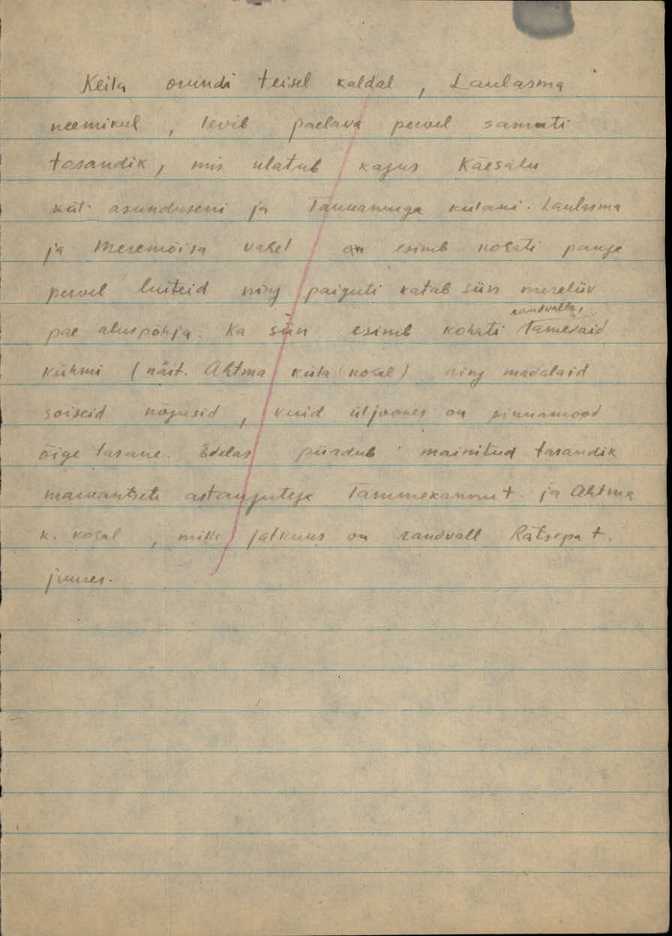 Keila orundi teisel kaldal, Laulasma
neemikul, levib paelava pervel samuti
tasandik, mis ulatub kagus Käesalu
asunduseni ja külani. Laulasma
ja Meremõisa vahel esineb kohati pange
pervel luiteid ning paiguti katab siin mereliiv
randvalle,
pae aluspõhja. Ka siin esineb kohati
kühmi (näit. Ahtma küla kohal) ning madalaid
soiseid nõgusid, kuid üljoones on pinnamood
õige tasane. Edelas piirdub mainitud tasandik
astanguteja Tammekannu t. ja Ahtma
k. kohal, mille jätkuks on randvall Rätsepa t.
juures.